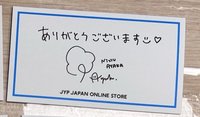 ありがとうございます♡
NIZIU
AYAKA
JYP JAPAN ONLINE STORE